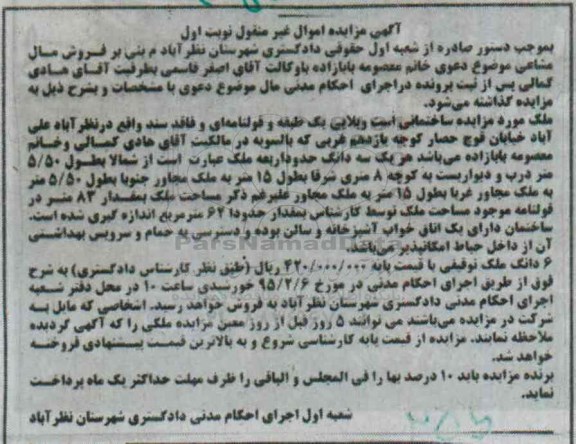 آگهی مزایده اموال غیر منقول نوبت اول
بموجب دستور صادره از شعبه اول حقوقی دادگستری شهرستان نظرآباد م بنی بر فروش مال
مشاعی موضوع دعوی خانم معصومه پابازاده باوکالت آقای اصغر قاسمی بطرفیت آقای هادی
کمالی پس از ثبت پرونده دراجرای احکام مدنی مال موضوع دعوی با مشخصات و بشرح ذیل به
مزایده گذاشته می‌شود.
ملک مورد مزایده ساختمانی است ویلایی یک طبقه و قولنامه‌ای و فاقد سند واقع درنظرآباد علی
آباد خیابان قوچ حصار کوچه یازدهم غربی که بالسویه در مالکیت آقای هادی کمالی وخانم
معصومه پابازاده می‌باشد هر یک سه دانگ حدوداربعه ملک عبارت است از شمالا بطول ۵/۵۰
متر درب و دیواریست به کوچه ۸ متری شرقا بطول ۱۵ متر به ملک مجاور جنوبا بطول ۵/۵۰ متر
به ملک مجاور غربا بطول ۱۵ متر به ملک مجاور علیرغم ذکر مساحت ملک بمقدار ۸۳ متر در
قولنامه موجود مساحت ملک توسط کارشناس بمقدار حدودا ۶۴ مترمربع اندازه گیری شده است.
ساختمان دارای یک اتاق خواب آشپزخانه و سالن بوده و دسترسی به حمام و سرویس بهداشتی
آن از داخل حیاط امکانپذیر می‌باشد.
ParsNamadData
۶ دانگ ملک توقیفی با قیمت پایه ۴۲۰/۰۰۰/۰۰۰ ریال (طبق نظر کارشناس دادگستری) به شرح
فوق از طریق اجرای احکام مدنی در مورخ ۹۵/۲/۶ خورشیدی ساعت ۱۰ در محل دفتر شعبه
اجرای احکام مدنی دادگستری شهرستان نظرآباد به فروش خواهد رسید. اشخاصی که مایل به
شرکت در مزایده می‌باشند می توانند ۵ روز قبل از روز معین مزایده ملکی را که آگهی گردیده
ملاحظه نمایند. مزایده از قیمت پایه کارشناسی شروع و به بالاترین قیمت پیشنهادی فروخته
خواهد شد.
برنده مزایده باید ۱۰ درصد بها را فی المجلس و الباقی را ظرف مهلت حداکثر یک ماه پرداخت
نماید.
شعبه اول اجرای احکام مدنی دادگستری شهرستان نظرآباد